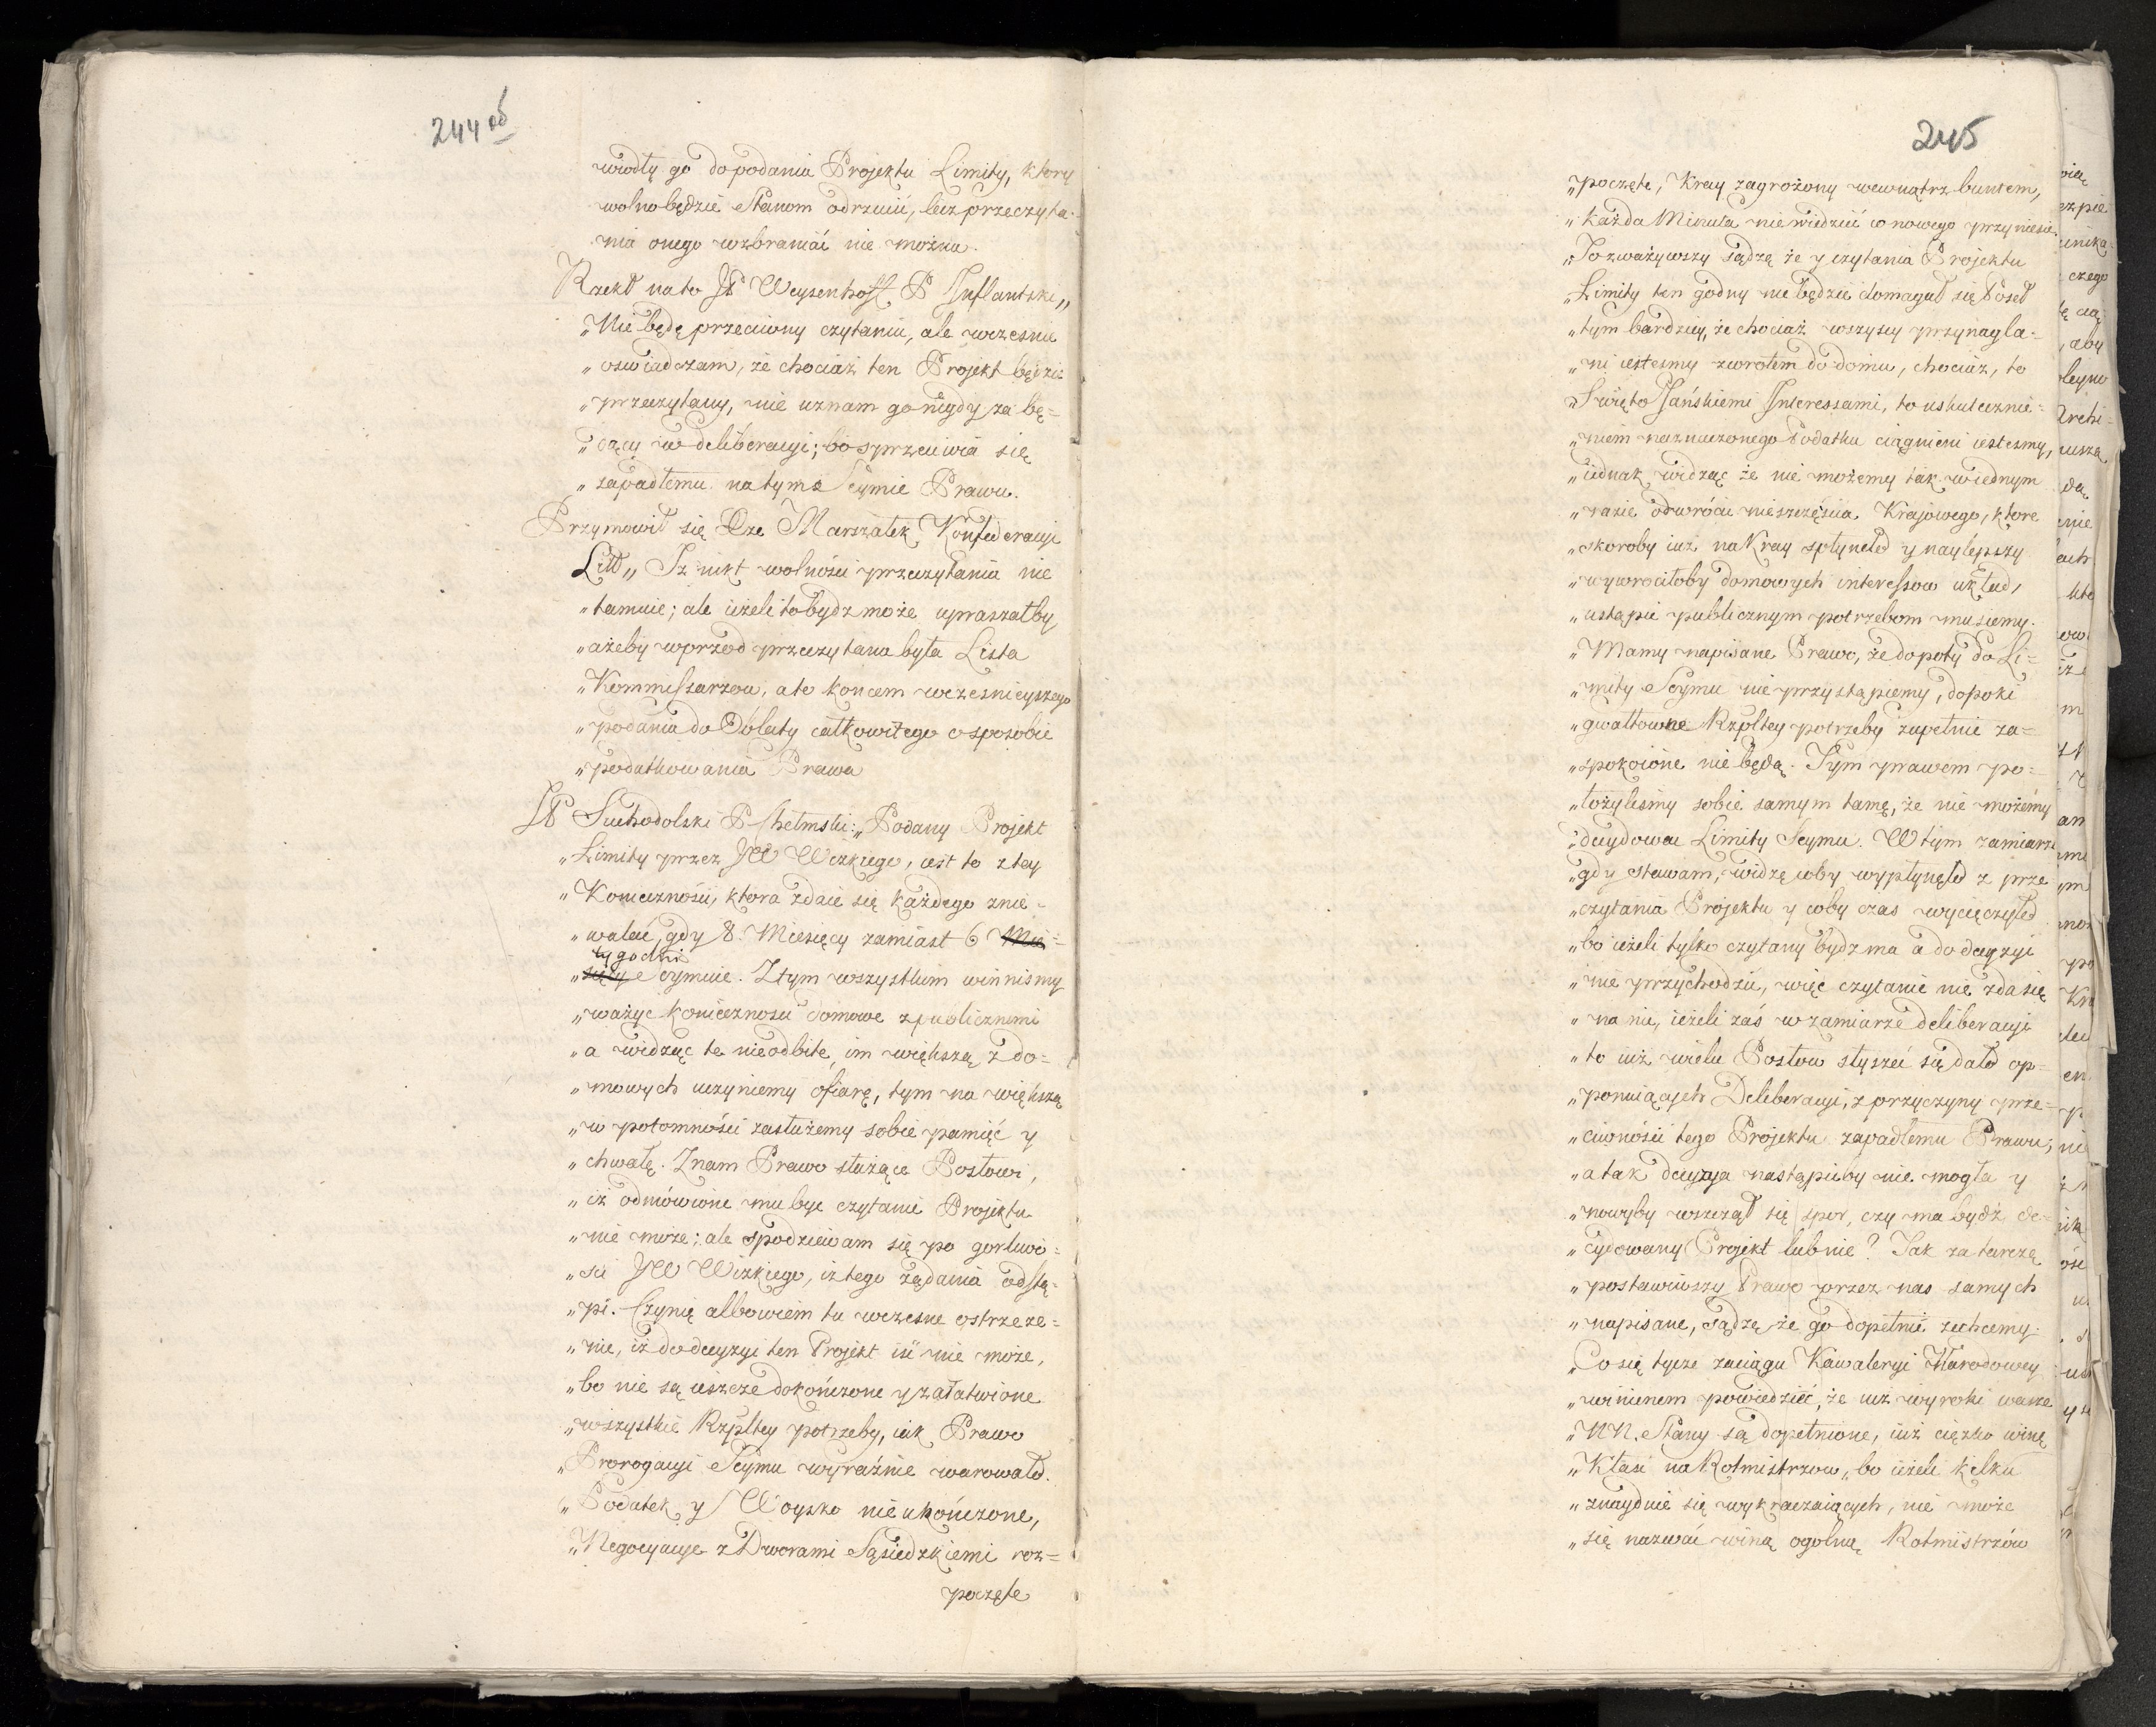 244 об
wiodły go do podania Projektu Limity, ktory
wolno będzie Stanom odrzucić, lecz przeczyta-
nia onego wzbraniać nie można.
Rzekł na to JP Weysenhoff P Inflantski„
„Nie będę przeciwny czytaniu, ale wczesnie
„oswiadczam, że chociaż ten Projekt będzie
„przeczytany, nie uznam go nigdy za bę=
„dący w deliberacyi; bo sprzeciwia się
„zapadłemu na tym Seymie Prawu.
Przymowił się Xże Marszałek Konfederacyi
Litt„ Iż nikt wolności przeczytania nie
„tamuie; ale ieżeli to bydz może upraszałby
„ażeby wprzod przeczytana była Lista
„Kommissarzow, a to koncem wczesnieyszego
„podania do Oblaty całkowitego o sposobie
„podatkowania Prawa
JP Suchodolski P Chełmski: „Podany Projekt
„Limity przez JW Wizkiego, iest to z tey
„Konieczności, ktora zdaie się każdego znie-
„walać, gdy 8. Miesięcy zamiast 6 Mie=
tygodni
„sięcy Seymuie. Z tym wszystkim winnismy
„ważyc konieczności domowe z publicznemi
„a widząc te nieodbite, im większą z do=
„mowych uczyniemy ofiarę, tym na większą
„w potomności zasłużemy sobie pamięć y
„chwałę. Znam Prawo służące Posłowi,
„iż odmówione mu byc czytanie Projektu
„nie może; ale spodziewam się po gorliwo=
„sci JW Wizkiego, iż tego żądania odstą-
„pi. Czynię albowiem tu wczesne ostrzeże=
„nie, iż do decyzyi ten Projekt iść nie może,
„bo nie są ieszcze dokończone y załatwione
„wszystkie Rzpltey potrzeby, iak Prawo
„Prorogacyi Seymu wyraźnie warowało.
„Podatek y Woysko nie ukończone,
„Negocyacye z Dworami Sąsiedzkiemi roz=
poczęte
245
„poczęte, Kray zagrożony wewnątrz buntem,
„każda Minuta nie wiedzieć co nowego przyniesie.
„To zważywszy sądzę że y czytania Projektu
„Limity ten godny nie będzie domagał się Poseł
„tym bardziey, że chociaż wszyscy przynagla-
„ni iestesmy zwrotem do domu, chociaż, to
„Swięto Jańskiemi Interessami, to uskutecznie=
„niem naznaczonego Podatku ciągnieni iestesmy,
„iednak widząc że nie możemy tak w iednym
„razie odwrócić nieszczęścia Krajowego, ktore
„skoroby iuż na Kray spłyneło y naylepszy
„wywrociłoby domowych interessow układ,
„ustąpić publicznym potrzebom musiemy.
„Mamy napisane Prawo, że dopoty do Li=
„mity Seymu nie przystąpiemy, dopoki
„gwałtowne Rzpltey potrzeby zupełnie za=
„spokoione nie będą. Tym prawem po=
„łożylismy sobie samym tamę, że nie możemy
„decydowac Limity Seymu. W tym zamiarze
„gdy stawam, widzę coby wypłynęło z prze
„czytania Projektu y coby czas wycięczyło
„bo ieżeli tylko czytany bydz ma a do decyzyi
„nie przychodzić, więc czytanie nie zda się
„na nic, ieżeli zaś w zamiarze deliberacyi
„to iuż wielu Posłow słyszeć się dało op-
„ponuiących Deliberacyi, z przyczyny prze=
„ciwności tego Projektu zapadłemu Prawu,
„a tak decyzya nastąpićby nie mogła y
„nowyby wszczął się spor, czy ma bydź de-
„cydowany Projekt lub nie? Jak za tarczę
„postawiwszy Prawo przez nas samych
„napisane, sądzę że go dopełnić zechcemy.
„Co się tycze zaciągu Kawaleryi Narodowey
„winienem powiedzieć, że iuż wyroki wasze
„NN. Stany są dopełnione, iuż cięzko winę
„Kłasć na Rotmistrzow, bo ieżeli kilku
„znayduie się wykraczaiących, nie może
„się nazwać winą ogolną Rotmistrzów